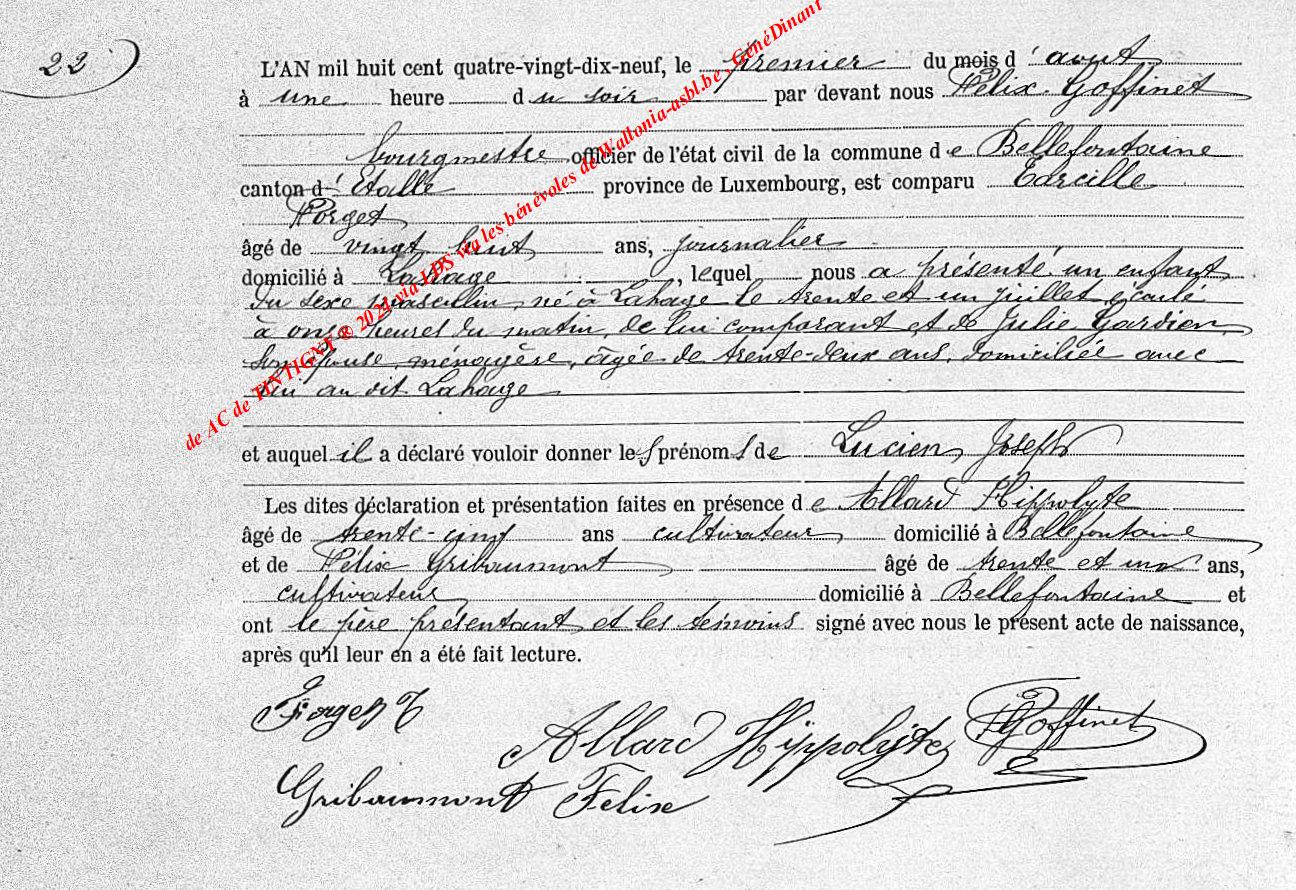 22
L'AN mil huit cent quatre-vingt-dix-neuf, le premier du mois d'août
à une heure du soir par devant nous Félix Goffinet
bourgmestre officier de l'état civil de la commune de Bellefontaine
canton d'Etalle province de Luxembourg, est comparu Tarcille
Forget
âgé de vingt huit ans, journalier
domicilié à Lahage, lequel nous a présenté un enfant
du sexe masculin, né à Lahage le trente et un juillet écoulé
à onze heures du matin, de lui comparant et de Julie Gardien
son épouse, ménagère, âgée de trente-deux ans, domiciliée avec
lui au dit Lahage
et auquel il a déclaré vouloir donner les prénoms de Lucien, Joseph
Les dites déclaration et présentation faites en présence de Allard Hippolyte
âgé de trente-cinq ans cultivateur domicilié à Bellefontaine
et de Félix Gribaumont âgé de trente et un ans,
cultivateur domicilié à Bellefontaine et
ont le père présentant et les témoins signé avec nous le présent acte de naissance,
après qu'il leur en a été fait lecture.
Forget T
Allard Hippolyte
FGoffinet
Gribaumont Felix
de AC de TINTIGNY © 2024 via LDS via les bénévoles de Wallonia-asbl.be - GénéDinant